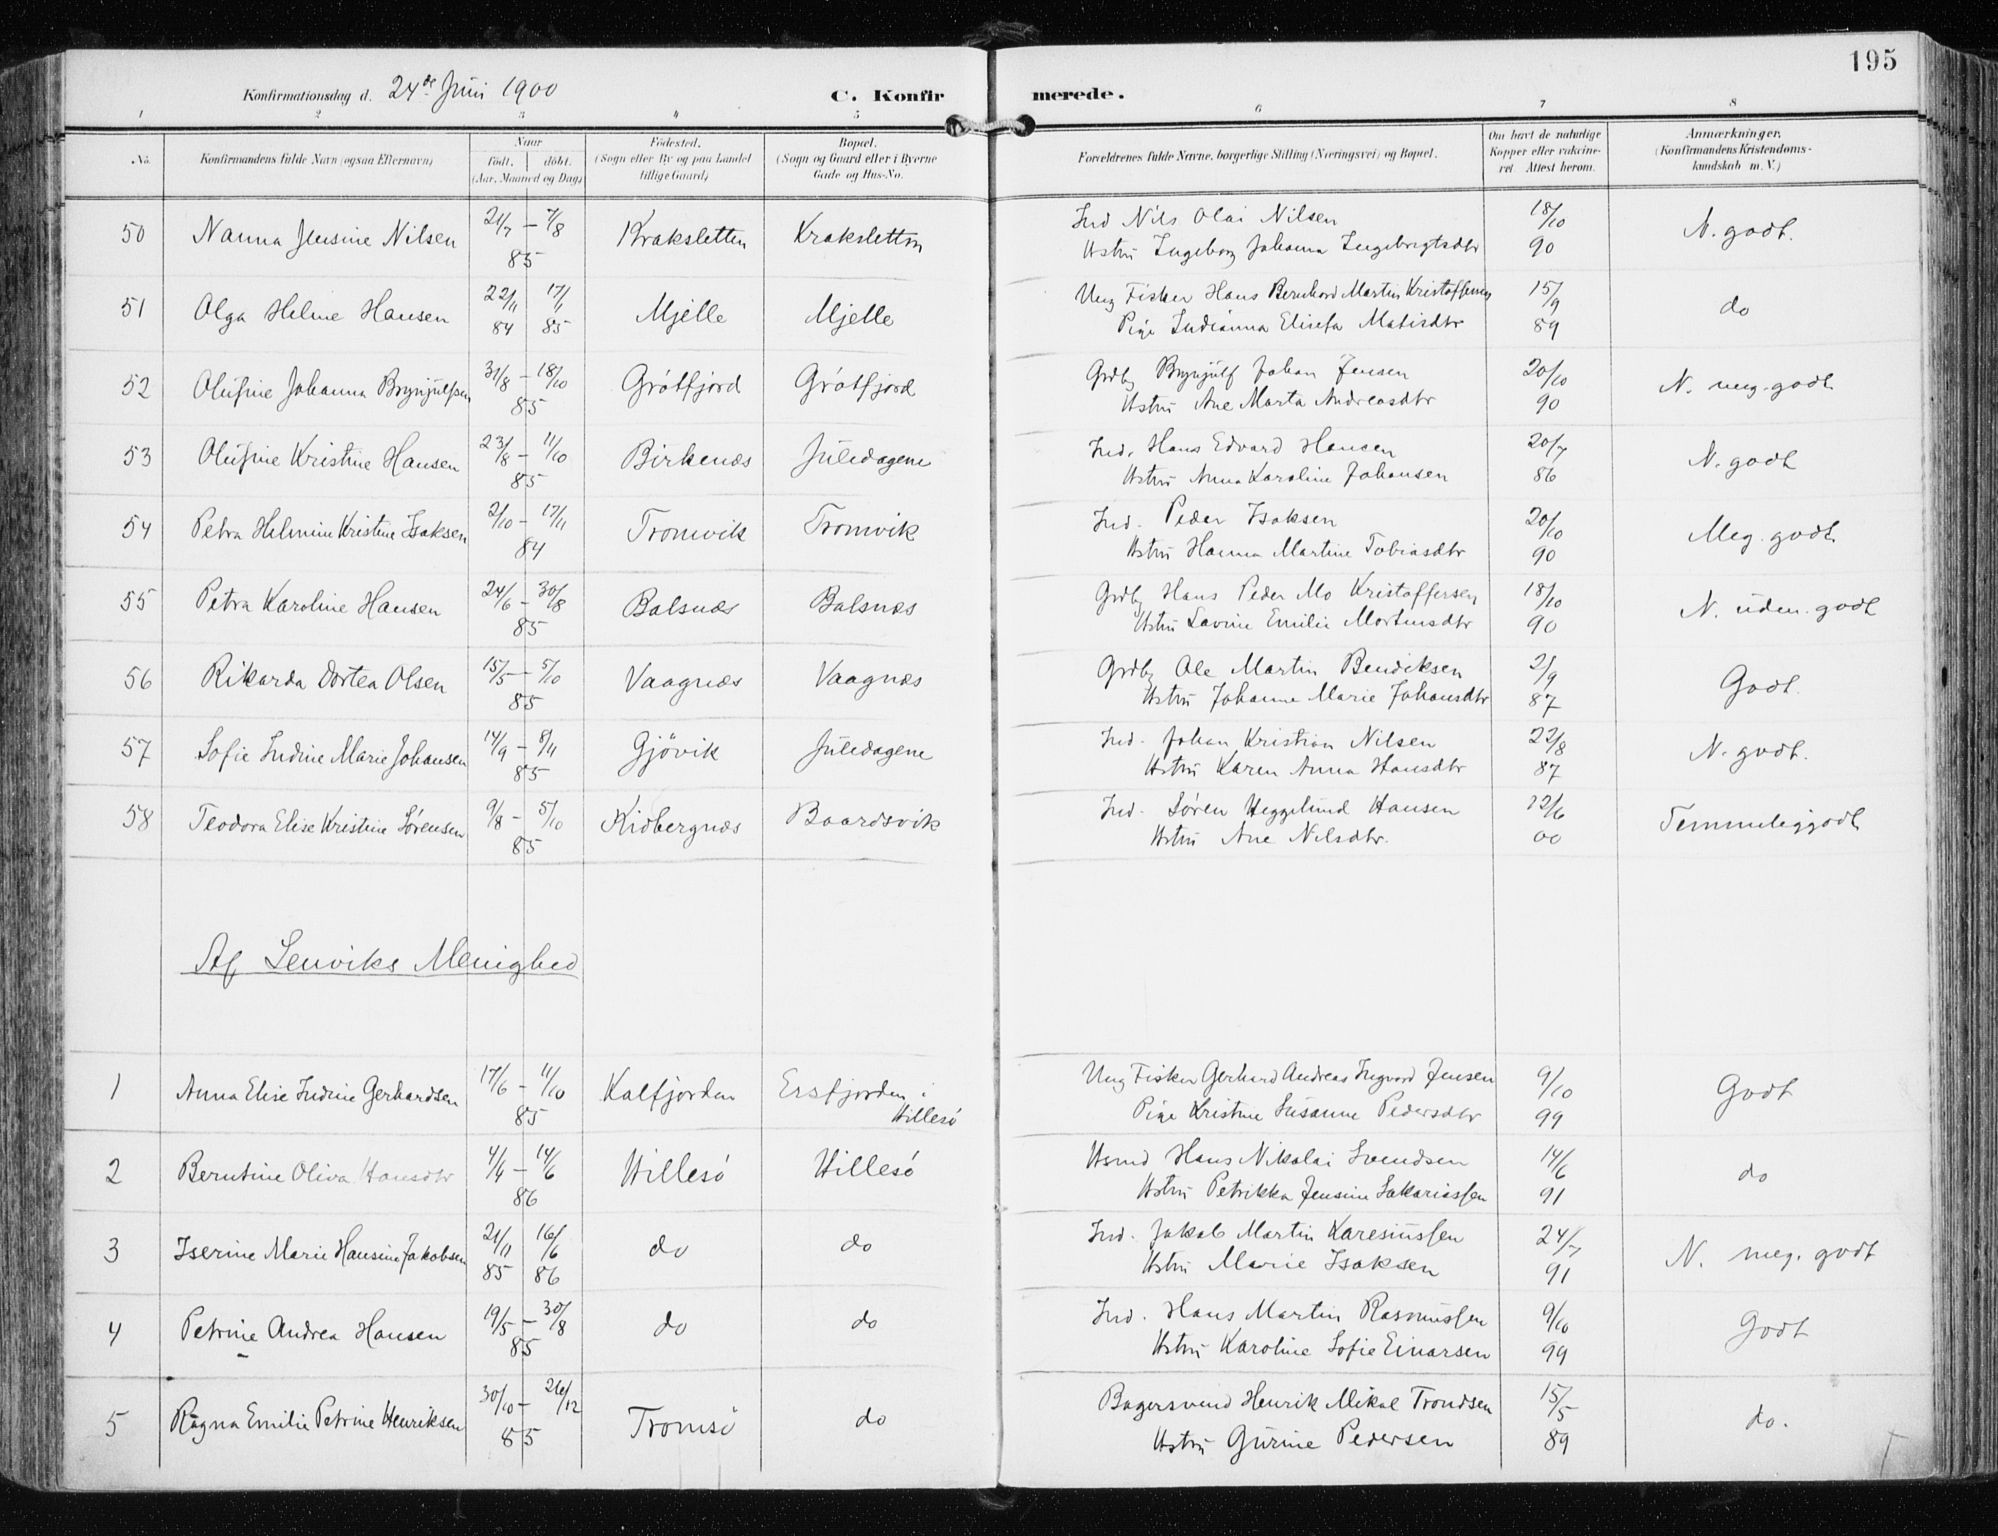 195
Konfirmationsdag d. 24de Juni 1900
C. Konfirmerede.
1 2 3 4 5 6 7 8
No. Konfirmandens fulde Navn (ogsaa Efternavn) Naar født, døbt. (Aar, Maaned og Dag) Fødested. (Sogn eller By og paa Landet tillige Gaard) Bopæl. (Sogn og Gaard eller i Byerne Gade og Hus-No. Forældrenes fulde Navne, borgerlige Stilling (Næringsvei) og Bopæl. Om havt de naturlige Kopper eller vakcineret. Attest herom. Anmærkninger. (Konfirmandens Kristendomskundskab m. V.)
50 Nanna Jensine Nilsen 21/7 – 7/8 85 Kraksletten Kraksletten Ind Nils Olai Nilsen 18/10 N. godt.
Hstru Ingeborg Johanna Ingebrigtsdtr 90
51 Olga Helene Hansen 22/11 84 17/1 85 Mjelle Mjelle Ung Fisker Hans Bernhard Martin Kristoffersen 15/9 do
Pige Indianna Elisefa Matisdtr 89
52 Olufine Johanna Brynjulfsen 31/8 – 18/10 85 Grötfjord Grötfjord Grdbg Brynjulf Johan Jensen 20/10 N. meg. godt
Hstru Ane Marta Andreasdtr 90
53 Olufine Kristine Hansen 23/8 – 11/10 85 Birkenæs Juledagene Ind. Hans Edvard Hansen 20/7 N. godt
Hstru Anna Karoline Johansen 86
54 Petra Helmine Kristine Isaksen 2/10 – 17/11 84 Tromvik Tromvik Ind. Peder Isaksen 20/10 Meg. godt
Hstru Hanna Martine Tobiasdtr 90
55 Petra Karoline Hansen 24/6 – 30/8 85 Balsnæs Balsnæs Grdbg Hans Peder Mo Kristoffersen 18/10 N. uden. godt
Hstru Lavine Emilie Mortensdtr 90
56 Rikarda Dortea Olsen 15/5 – 5/10 85 Vaagnæs Vaagnæs Grdbg Ole Martin Bendiksen 2/9 Godt.
Hstru Johanne Marie Johansdtr 87
57 Sofie Indine Marie Johansen 14/9 – 8/11 85 Gjövik Juledagene Ind. Johan Kristian Nilsen 22/8 N. godt.
Hstru Karen Anna Hansdtr 87
58 Teodora Elise Kristine Sörensen 9/8 – 5/10 85 Kidbergnæs Baardsvik Ind. Sören Heggelund Hansen 12/6 Temmeliggodt
Hstru Ane Nilsdtr. 00
Af Lenviks Menighed
1 Anna Elise Indine Gerhardsen 17/6 – 11/10 85 Kalfjorden Ersfjorden i Hillesö Ung Fisker Gerhard Andreas Ingvard Jensen 9/10 Godt
Pige Kristine Susanne Pedersdtr 99
2 Berntine Oliva Hansdtr 4/4 – 14/6 86 Hillesö Hillesö Hsmd Hans Nikolai Svendsen 14/6 do
Hstru Petrikka Jensine Sakariassen 91
3 Iserine Marie Hansine Jakobsen 21/11 85 16/6 86 do do Ind. Jakob Martin Karesiussen 24/7 N. meg. godt
Hstru Marie Isaksen 91
4 Petrine Andrea Hansen 19/5 – 30/8 85 do do Ind. Hans Martin Rasmussen 9/10 Godt
Hstru Karoline Sofie Einarsen 99
5 Ragna Emilie Petrine Henriksen 30/10 – 26/12 85 Tromsö do Bagersvend Henrik Mikal Trondsen 15/5 do.
Hstru Gurine Pedersen 89